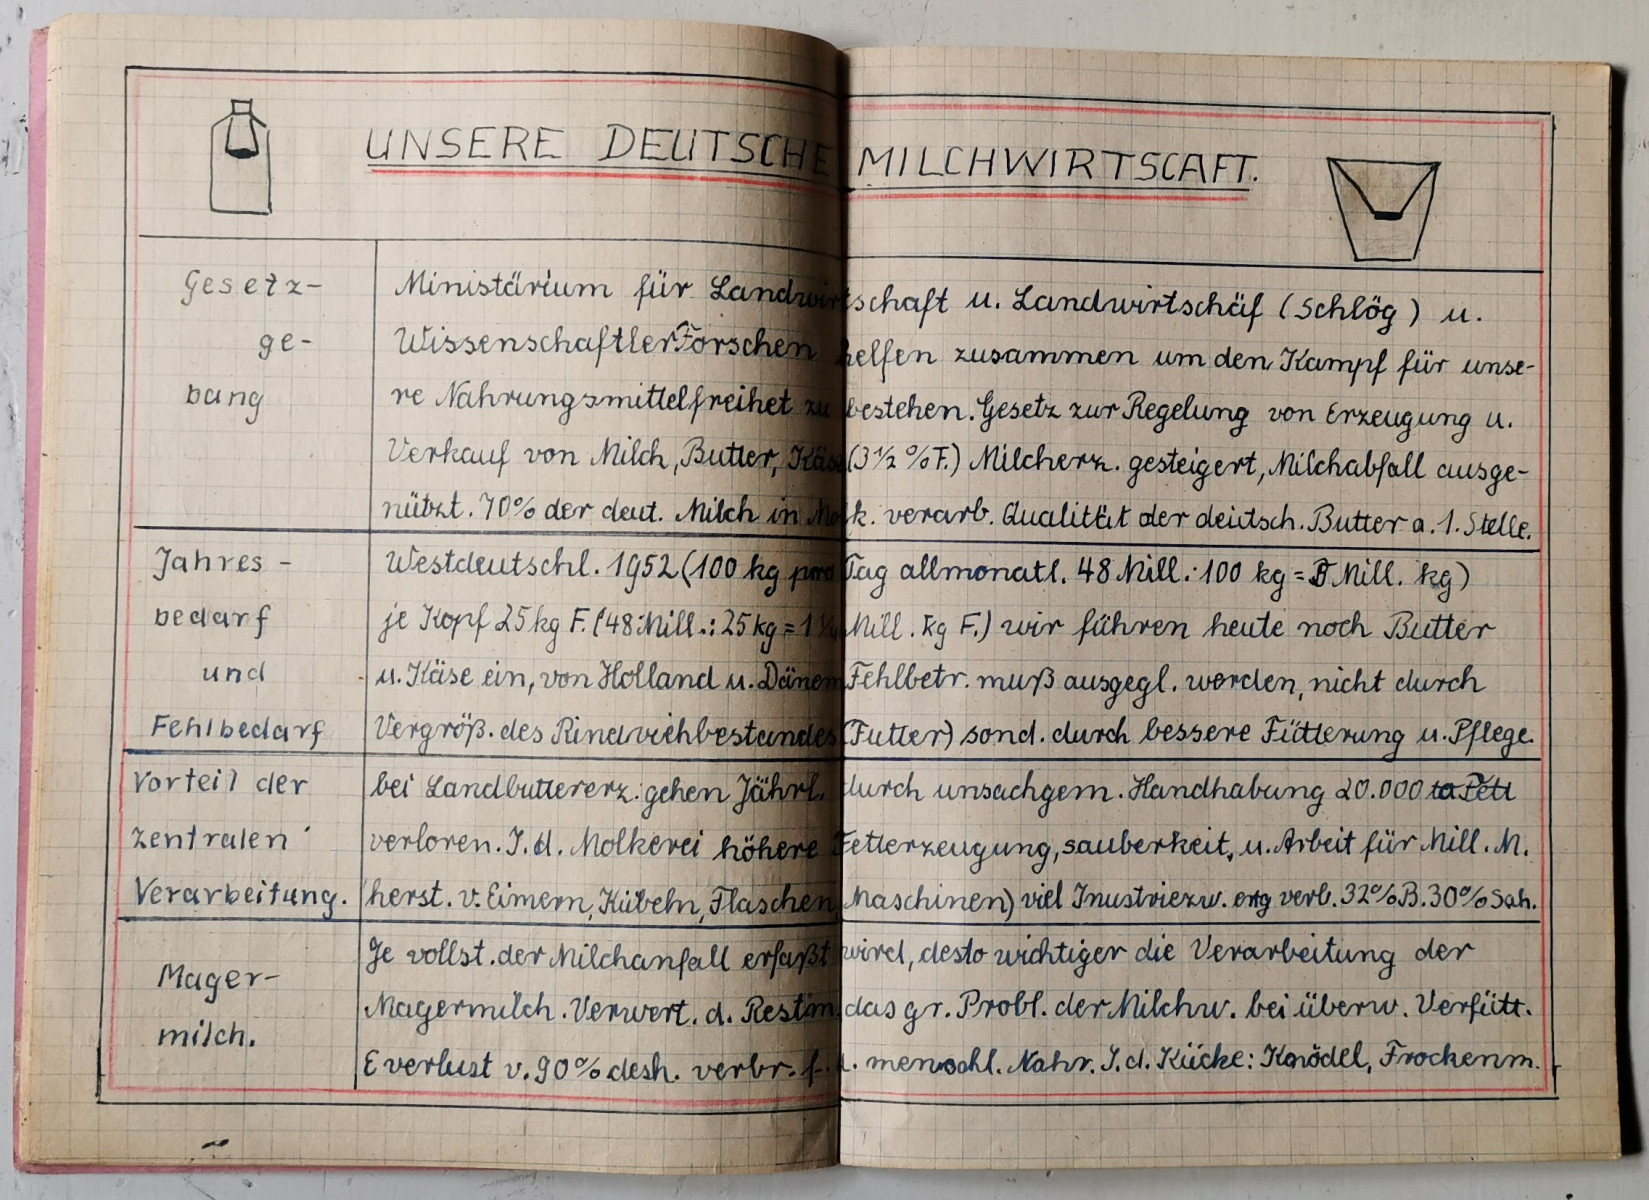 UNSERE DEUTSCHE MILCHWIRTSCAFT.
Gesetz-
ge-
bung
Ministärium für Landwirtschaft u. Landwirtschäf (Schlög) u.
Wissenschaftler Forschen helfen zusammen um den Kampf für unse-
re Nahrungsmittelfreihet zu bestehen. Gesetz zur Regelung von Erzeugung u.
Verkauf von Milch, Butter, Käse (3 1/2 % F.) Milcherz. gesteigert, Milchabfall ausge-
nützt. 70% der deut. Milch in Molk. verarb. Qualität der deutsch. Butter a. 1. Stelle.
Jahres-
bedarf
und
Fehlbedarf
Westdeutschl. 1952 (100 kg pro Tag allmonatl. 48 Mill.: 100 kg = 5 Mill. kg)
je Kopf 25 kg F. (48 Mill.: 25 kg = 1 Mill. kg F.) wir führen heute noch Butter
u. Käse ein, von Holland u. Dänem Fehlbetr. muß ausgegl. werden, nicht durch
Vergröß. des Rindviehbestandes (Futter) sond. durch bessere Fütterung u. Pflege.
Vorteil der
zentralen
Verarbeitung.
bei Landbuttererz. gehen Jährl. durch unsachgem. Handhabung 20.000 to Fett
verloren. I. d. Molkerei höhere Fetterzeugung, sauberkeit, u. Arbeit für Mill. M.
(herst. v. Eimern, Kübeln, Flaschen, Maschinen) viel Inustriezw. eng verb. 32% B. 30% Sah.
Mager-
milch.
Je vollst. der Milchanfall erfaßt wird, desto wichtiger die Verarbeitung der
Magermilch. Verwert. d. Restm. das gr. Probl. der Milchw. bei überw. Verfütt.
Everlust v. 90% desh. verbr. f. d. menschl. Nahr. I. d. Kücke: Knödel, Trockenm.